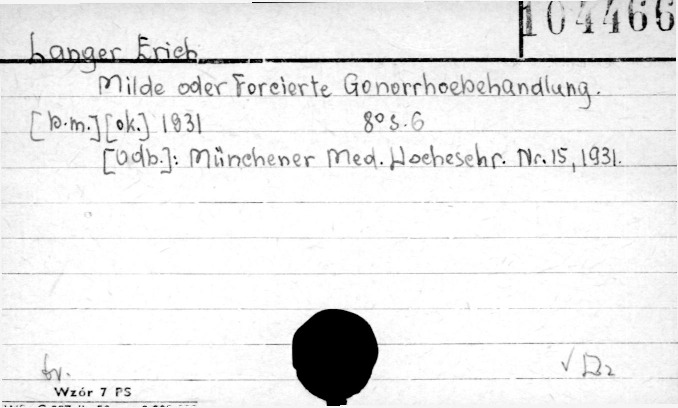 104466
Langer Erich
Milde oder Forcierte Gonorrhoebehandlung.
[b.m.] [ok.] 1931 8° s. 6
[Odb.]: Münchener Med. Wocheschr. Nr. 15, 1931.
br.
Wzór 7 PS